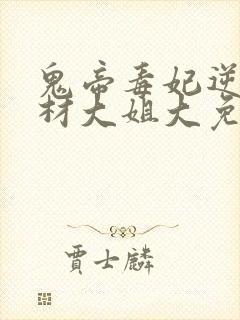 鬼帝毒妃逆
材大姐大免
贾士麟